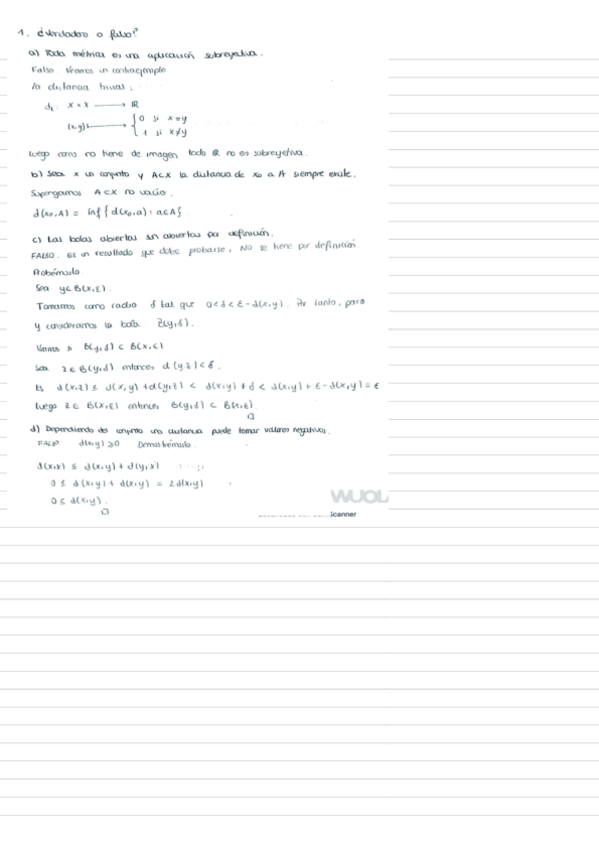 1. ¿Verdadero o falso?
a) Toda métrica es una aplicación sobreyectiva.
Falso. Veamos un contraejemplo
la distancia trivial:
d₁: X × X ⟶ ℝ
(x,y) ⟼ { 0 si x=y
1 si x≠y
Luego como no tiene de imagen todo ℝ no es sobreyectiva.
b) Sea X un conjunto y A⊂X la distancia de x₀ a A siempre existe.
Supongamos A⊂X no vacío.
d(x₀,A) = inf { d(x₀,a) : a∈A }
c) Las bolas abiertas son abiertos por definición.
FALSO. Es un resultado que debe probarse, NO se tiene por definición
Probémoslo
Sea y∈B(x,ε)
Tomamos como radio δ tal que 0<δ<ε-d(x,y). Por tanto, para
y consideramos la bola B(y,δ).
Veamos si B(y,δ) ⊂ B(x,ε)
Sea z∈B(y,δ) entonces d(y,z)<δ.
Es d(x,z) ≤ d(x,y) + d(y,z) < d(x,y) + δ < d(x,y) + ε - d(x,y) = ε
luego z∈ B(x,ε) entonces B(y,δ) ⊂ B(x,ε)
□
d) Dependiendo del conjunto una distancia puede tomar valores negativos.
FALSO d(x,y) ≥0 Demostrémoslo
d(x,x) ≤ d(x,y) + d(y,x)
0 ≤ d(x,y) + d(x,y) = 2d(x,y)
0 ≤ d(x,y).
□
WUOL
scanner